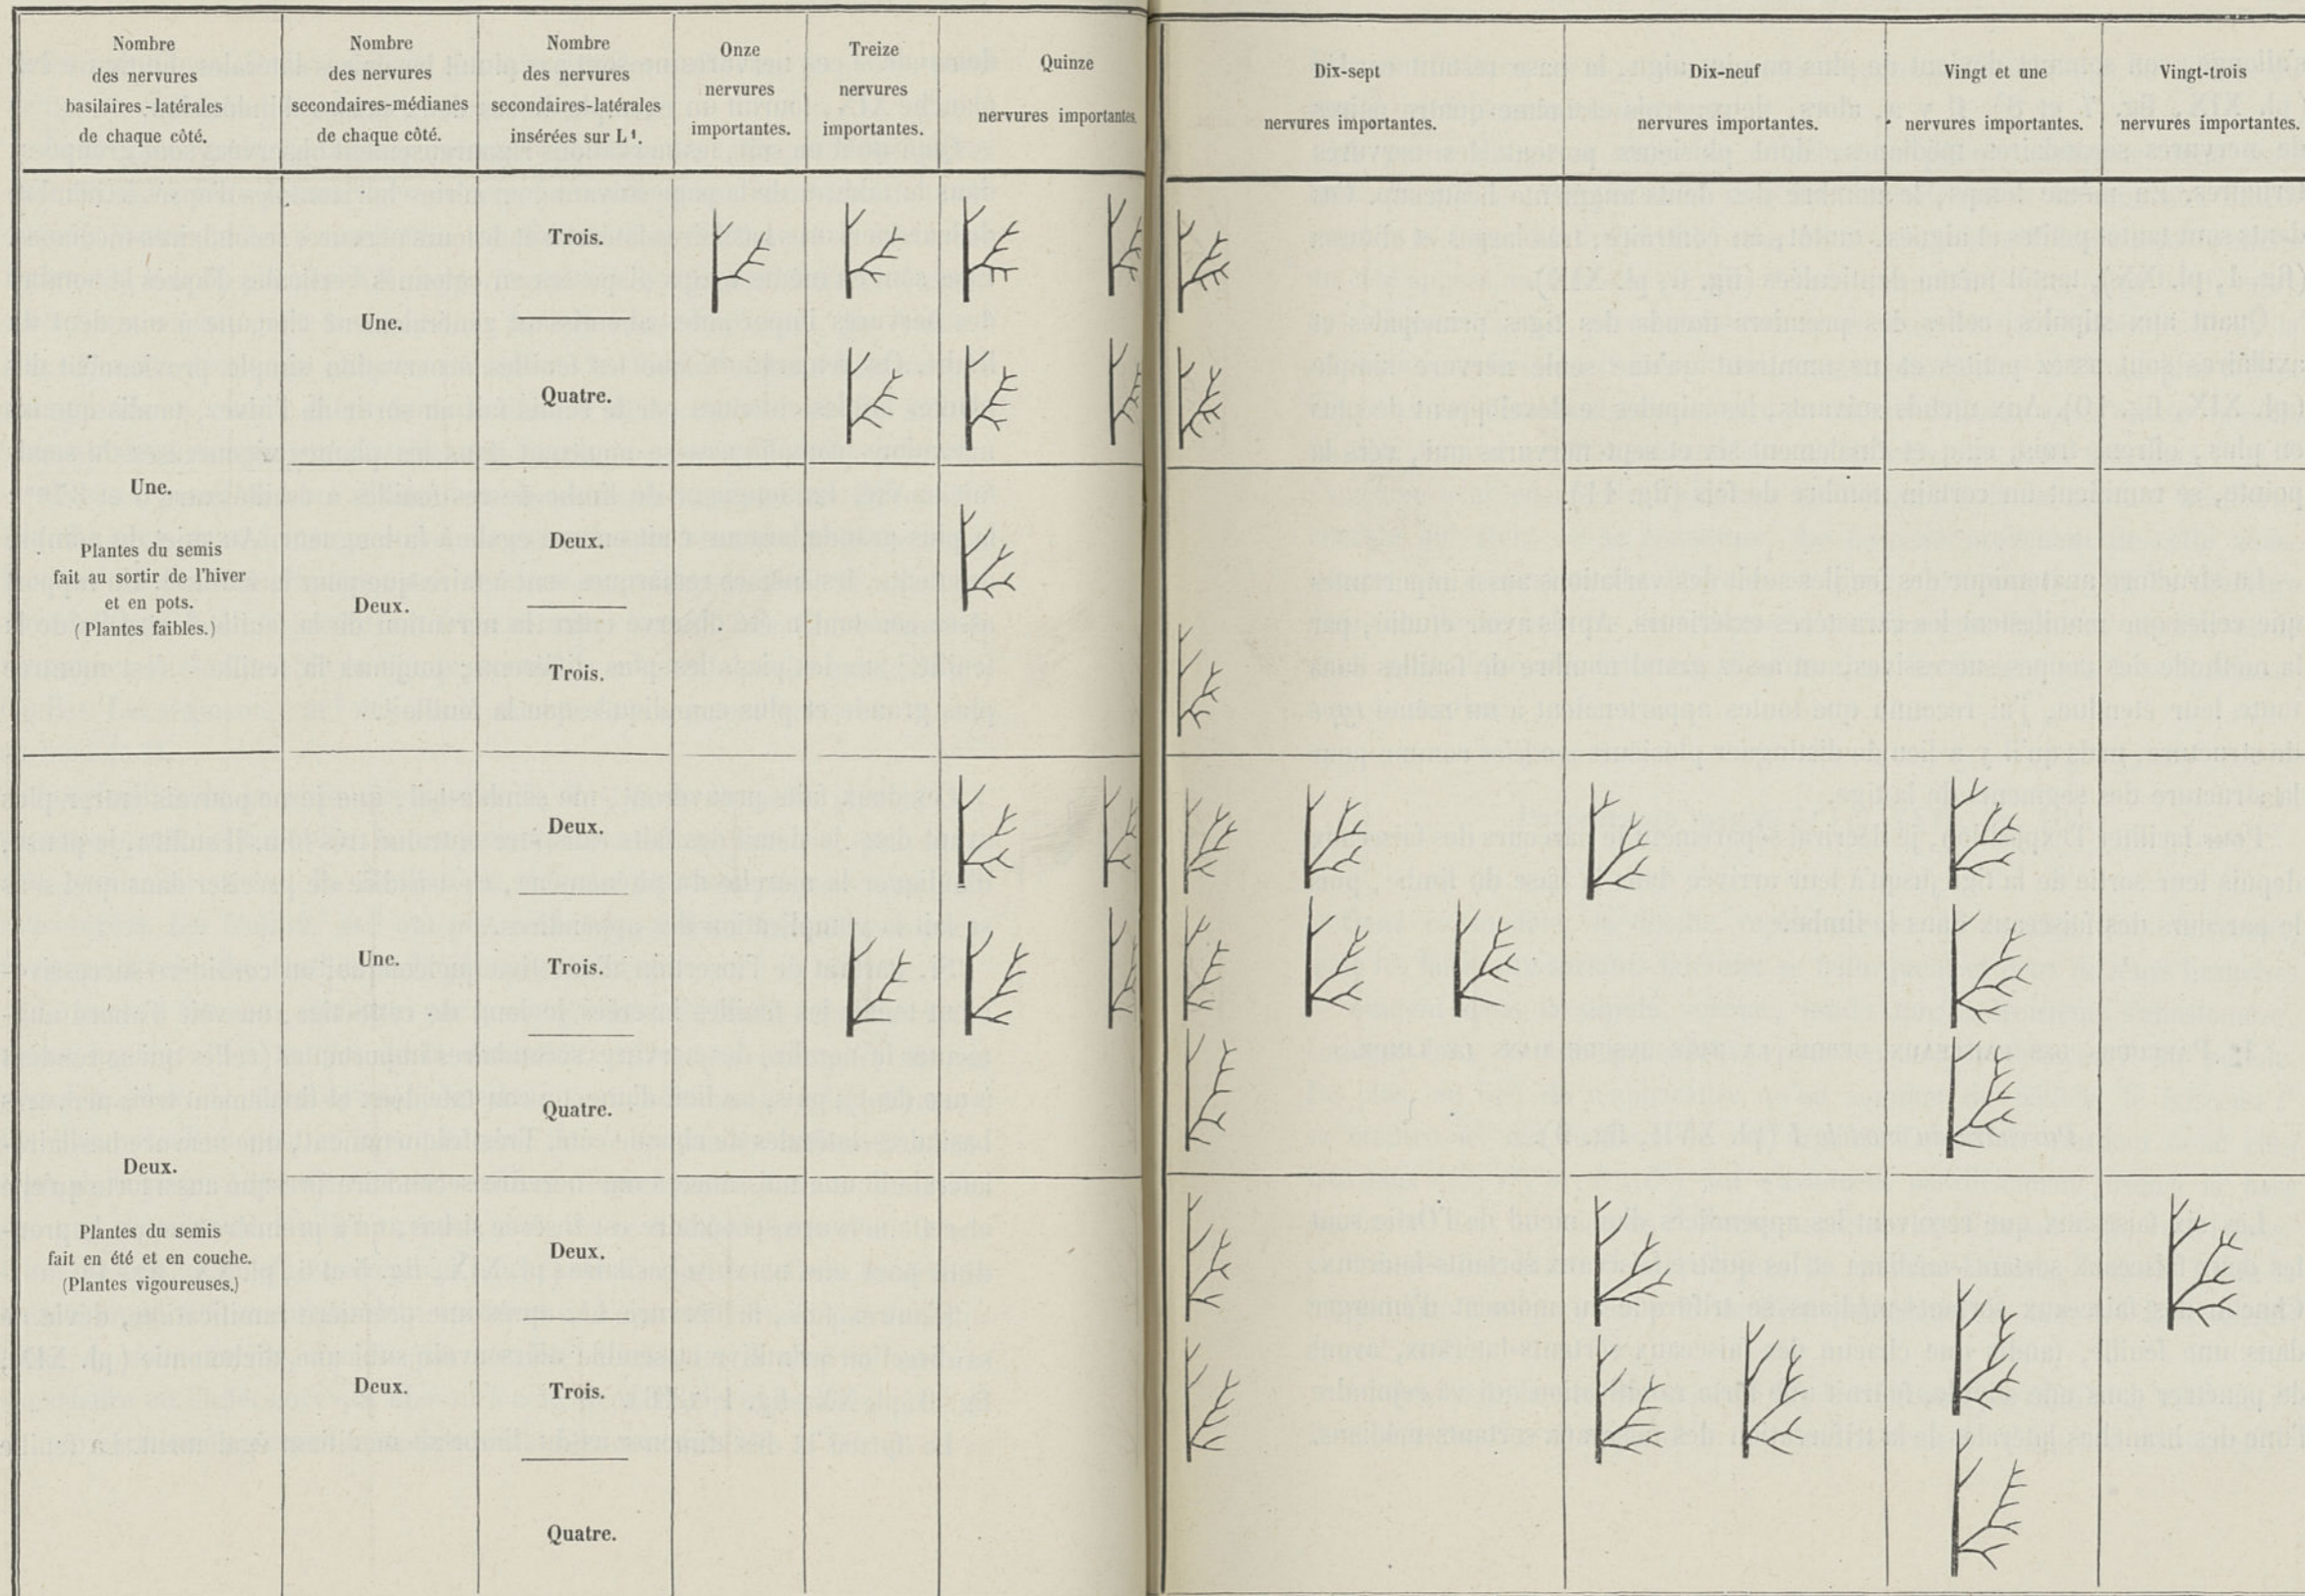 Nombre
des nervures
basilaires-latérales
de chaque côté.
Nombre
des nervures
secondaires-médianes
de chaque côté.
Nombre
des nervures
secondaires-latérales
insérées sur L¹.
Onze
nervures
importantes.
Treize
nervures
importantes.
Quinze
nervures importantes.
Dix-sept
nervures importantes.
Dix-neuf
nervures importantes.
Vingt et une
nervures importantes.
Vingt-trois
nervures importantes.
Une.
Plantes du semis
fait au sortir de l'hiver
et en pots.
(Plantes faibles.)
Une.
Trois.
Quatre.
Deux.
Deux.
Trois.
Deux.
Plantes du semis
fait en été et en couche.
(Plantes vigoureuses.)
Une.
Deux.
Trois.
Quatre.
Deux.
Deux.
Trois.
Quatre.